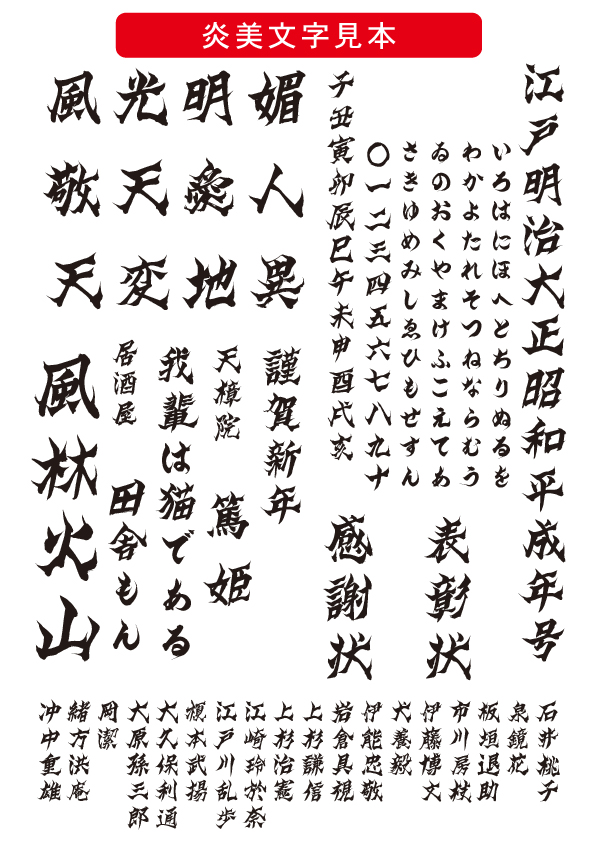 炎美文字見本
江戸明治大正昭和平成年号
いろはにほへとちりぬるを
わかよたれそつねならむう
ゐのおくやまけふこえてあ
さきゆめみしゑひもせすん
〇一二三四五六七八九十
子丑寅卯辰巳午未申酉戌亥
表彰状
感謝状
風光明媚
敬天愛人
天変地異
謹賀新年
天樟院 篤姫
我輩は猫である
居酒屋 田舎もん
風林火山
石井桃子
泉鏡花
板垣退助
市川房枝
伊藤博文
犬養毅
伊能忠敬
岩倉具視
上杉謙信
上杉治憲
江崎玲於奈
江戸川乱歩
榎本武揚
大久保利通
大原孫三郎
岡潔
緒方洪庵
沖中重雄